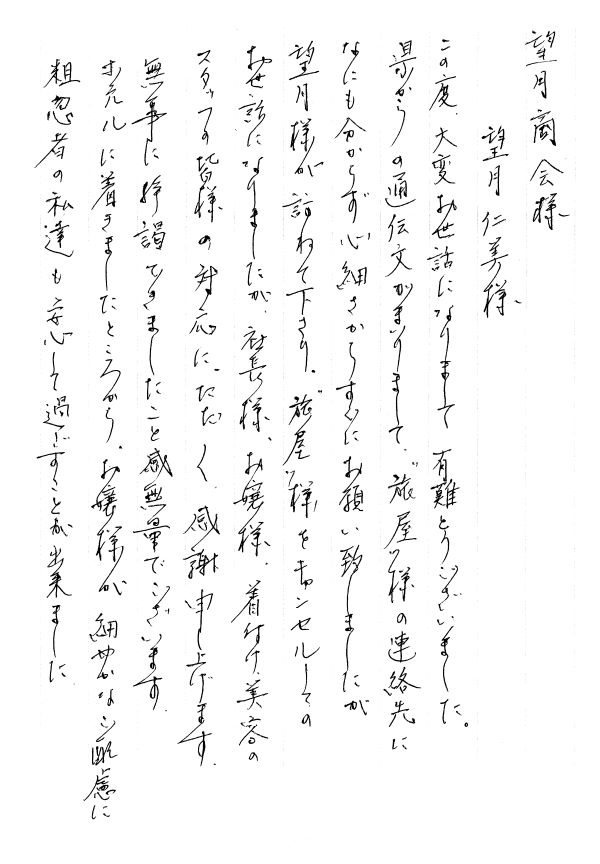 望月商会様
望月仁美様
この度、大変お世話になりまして有難とうございました。
県からの通伝文がまいりまして、"旅屋"様の連絡先に
なにも分からず心細さからすぐにお願い致しましたが
望月様が訪ねて下さり、"旅屋"様をキャンセルしての
お世話になりましたが、社長様、お嬢様、着付け、美容の
スタッフの皆様の対応に、ただ〱感謝申し上げます。
無事に拝謁できましたこと感無量でございます。
ホテルに着きましたところから、お嬢様が細やかなご配慮に
粗忽者の私達も安心して過ごすことが出来ました